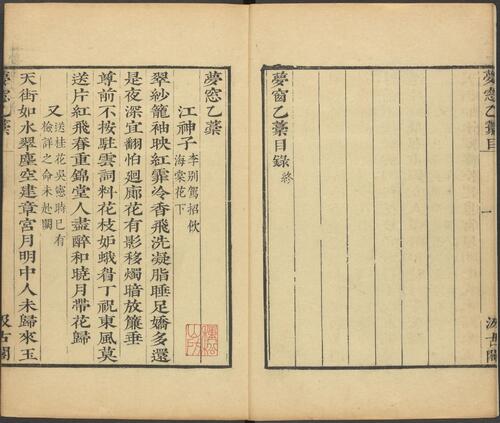 夢窗乙藁目
一
汲古閣
夢窗乙藁目錄終
夢窓乙藁
江神子 李别駕招飲
海棠花下
翠紗籠袖映紅霏冷香飛洗凝脂睡足嬌多還
是夜深宜翻怕廻廊花有影移燭暗放簾垂
尊前不按駐雲詞料花枝妒蛾眉丁祝東風莫
送片紅飛春重錦堂人盡醉和曉月帶花歸
又 送桂花吳憲時已有
檢詳之命未赴闕
天街如水翠塵空建章宮月明中人未歸來玉
夢窓乙藁
汲古閣